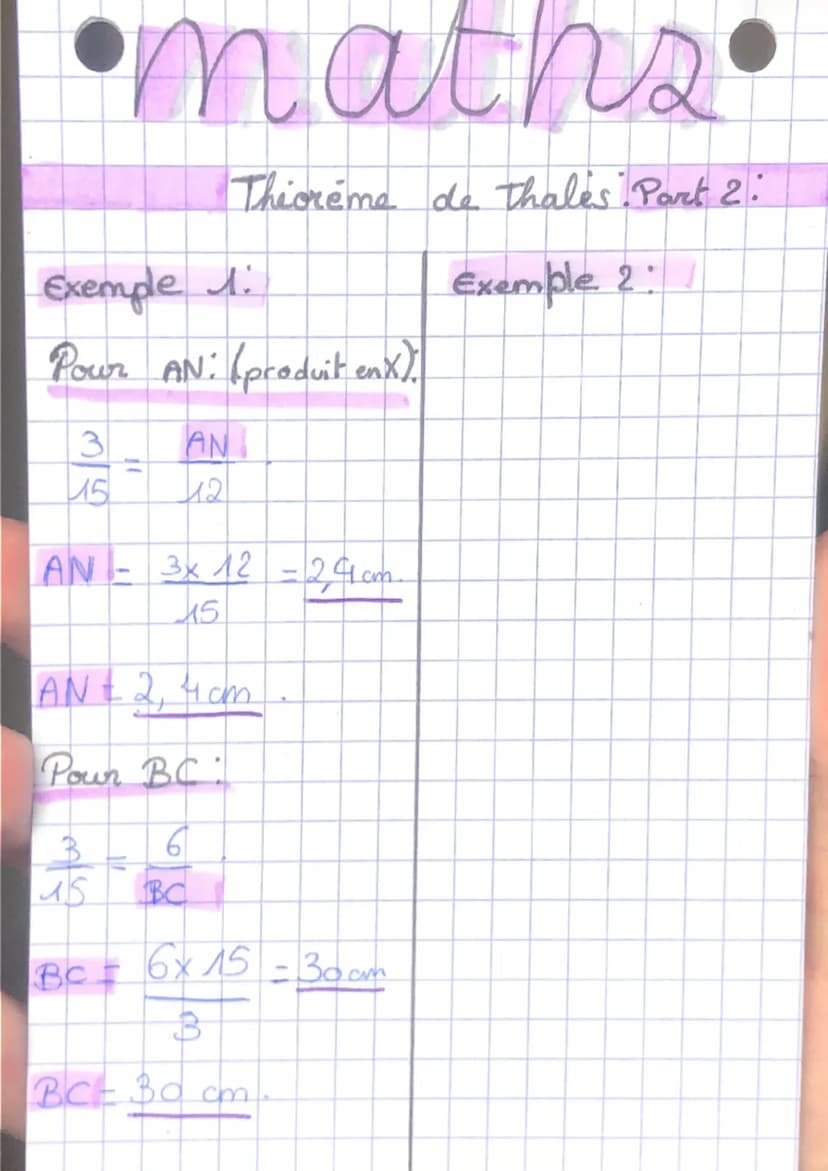 maths
Théorème de Thalès : Part 2 :
Exemple 1 :
Pour AN : (produit en X) :
3/15 = AN/12
AN = 3 x 12/15 = 2,4 cm.
AN = 2,4 cm.
Pour BC :
3/15 = 6/BC
BC = 6 x 15/3 = 30 cm
BC = 30 cm.
Exemple 2 :